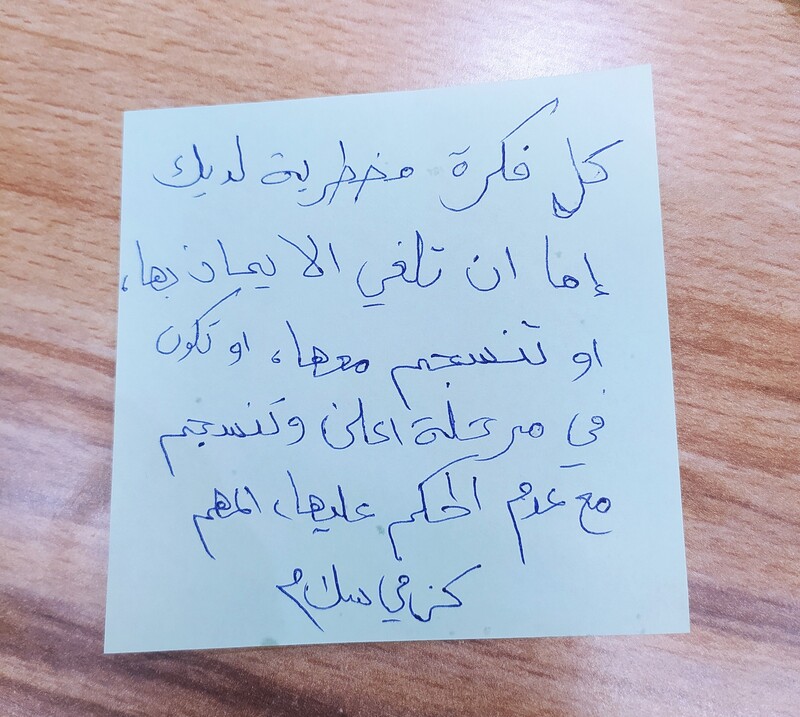 كل فكرة مضطربة لديك
إما ان تلغي الايمان بها،
او تنسجم معها، او تكون
في مرحلة اعلى وتنسجم
مع عدم الحكم عليها، المهم
كن في سلام